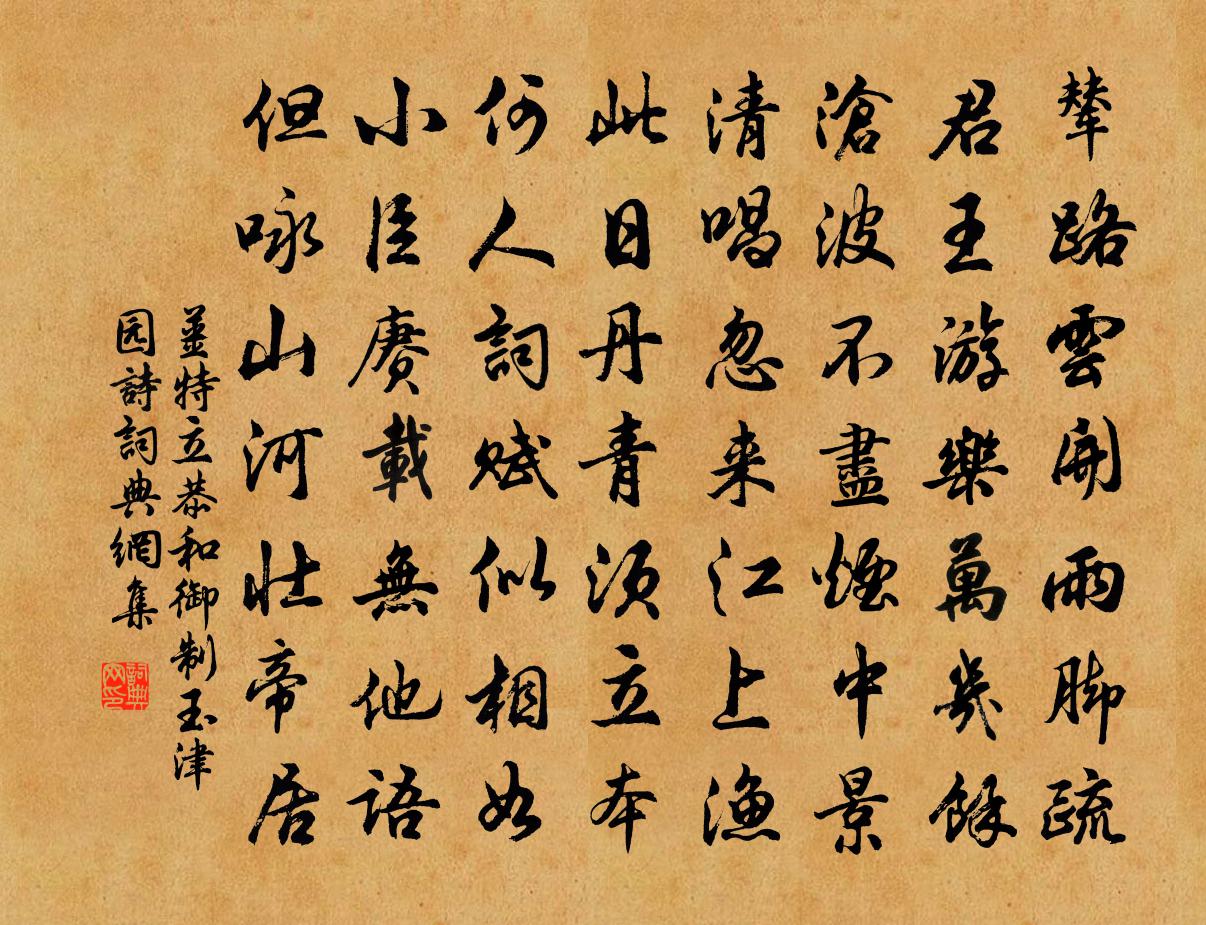 輦路雲開雨腳疏
君王游樂萬幾餘
滄波不盡煙中景
清唱忽来江上漁
此日丹青須立本
何人詞賦似相如
小臣賡載無他語
但咏山河壮帝居
姜特立恭和御制玉津
园詩詞典網集
詞典网印